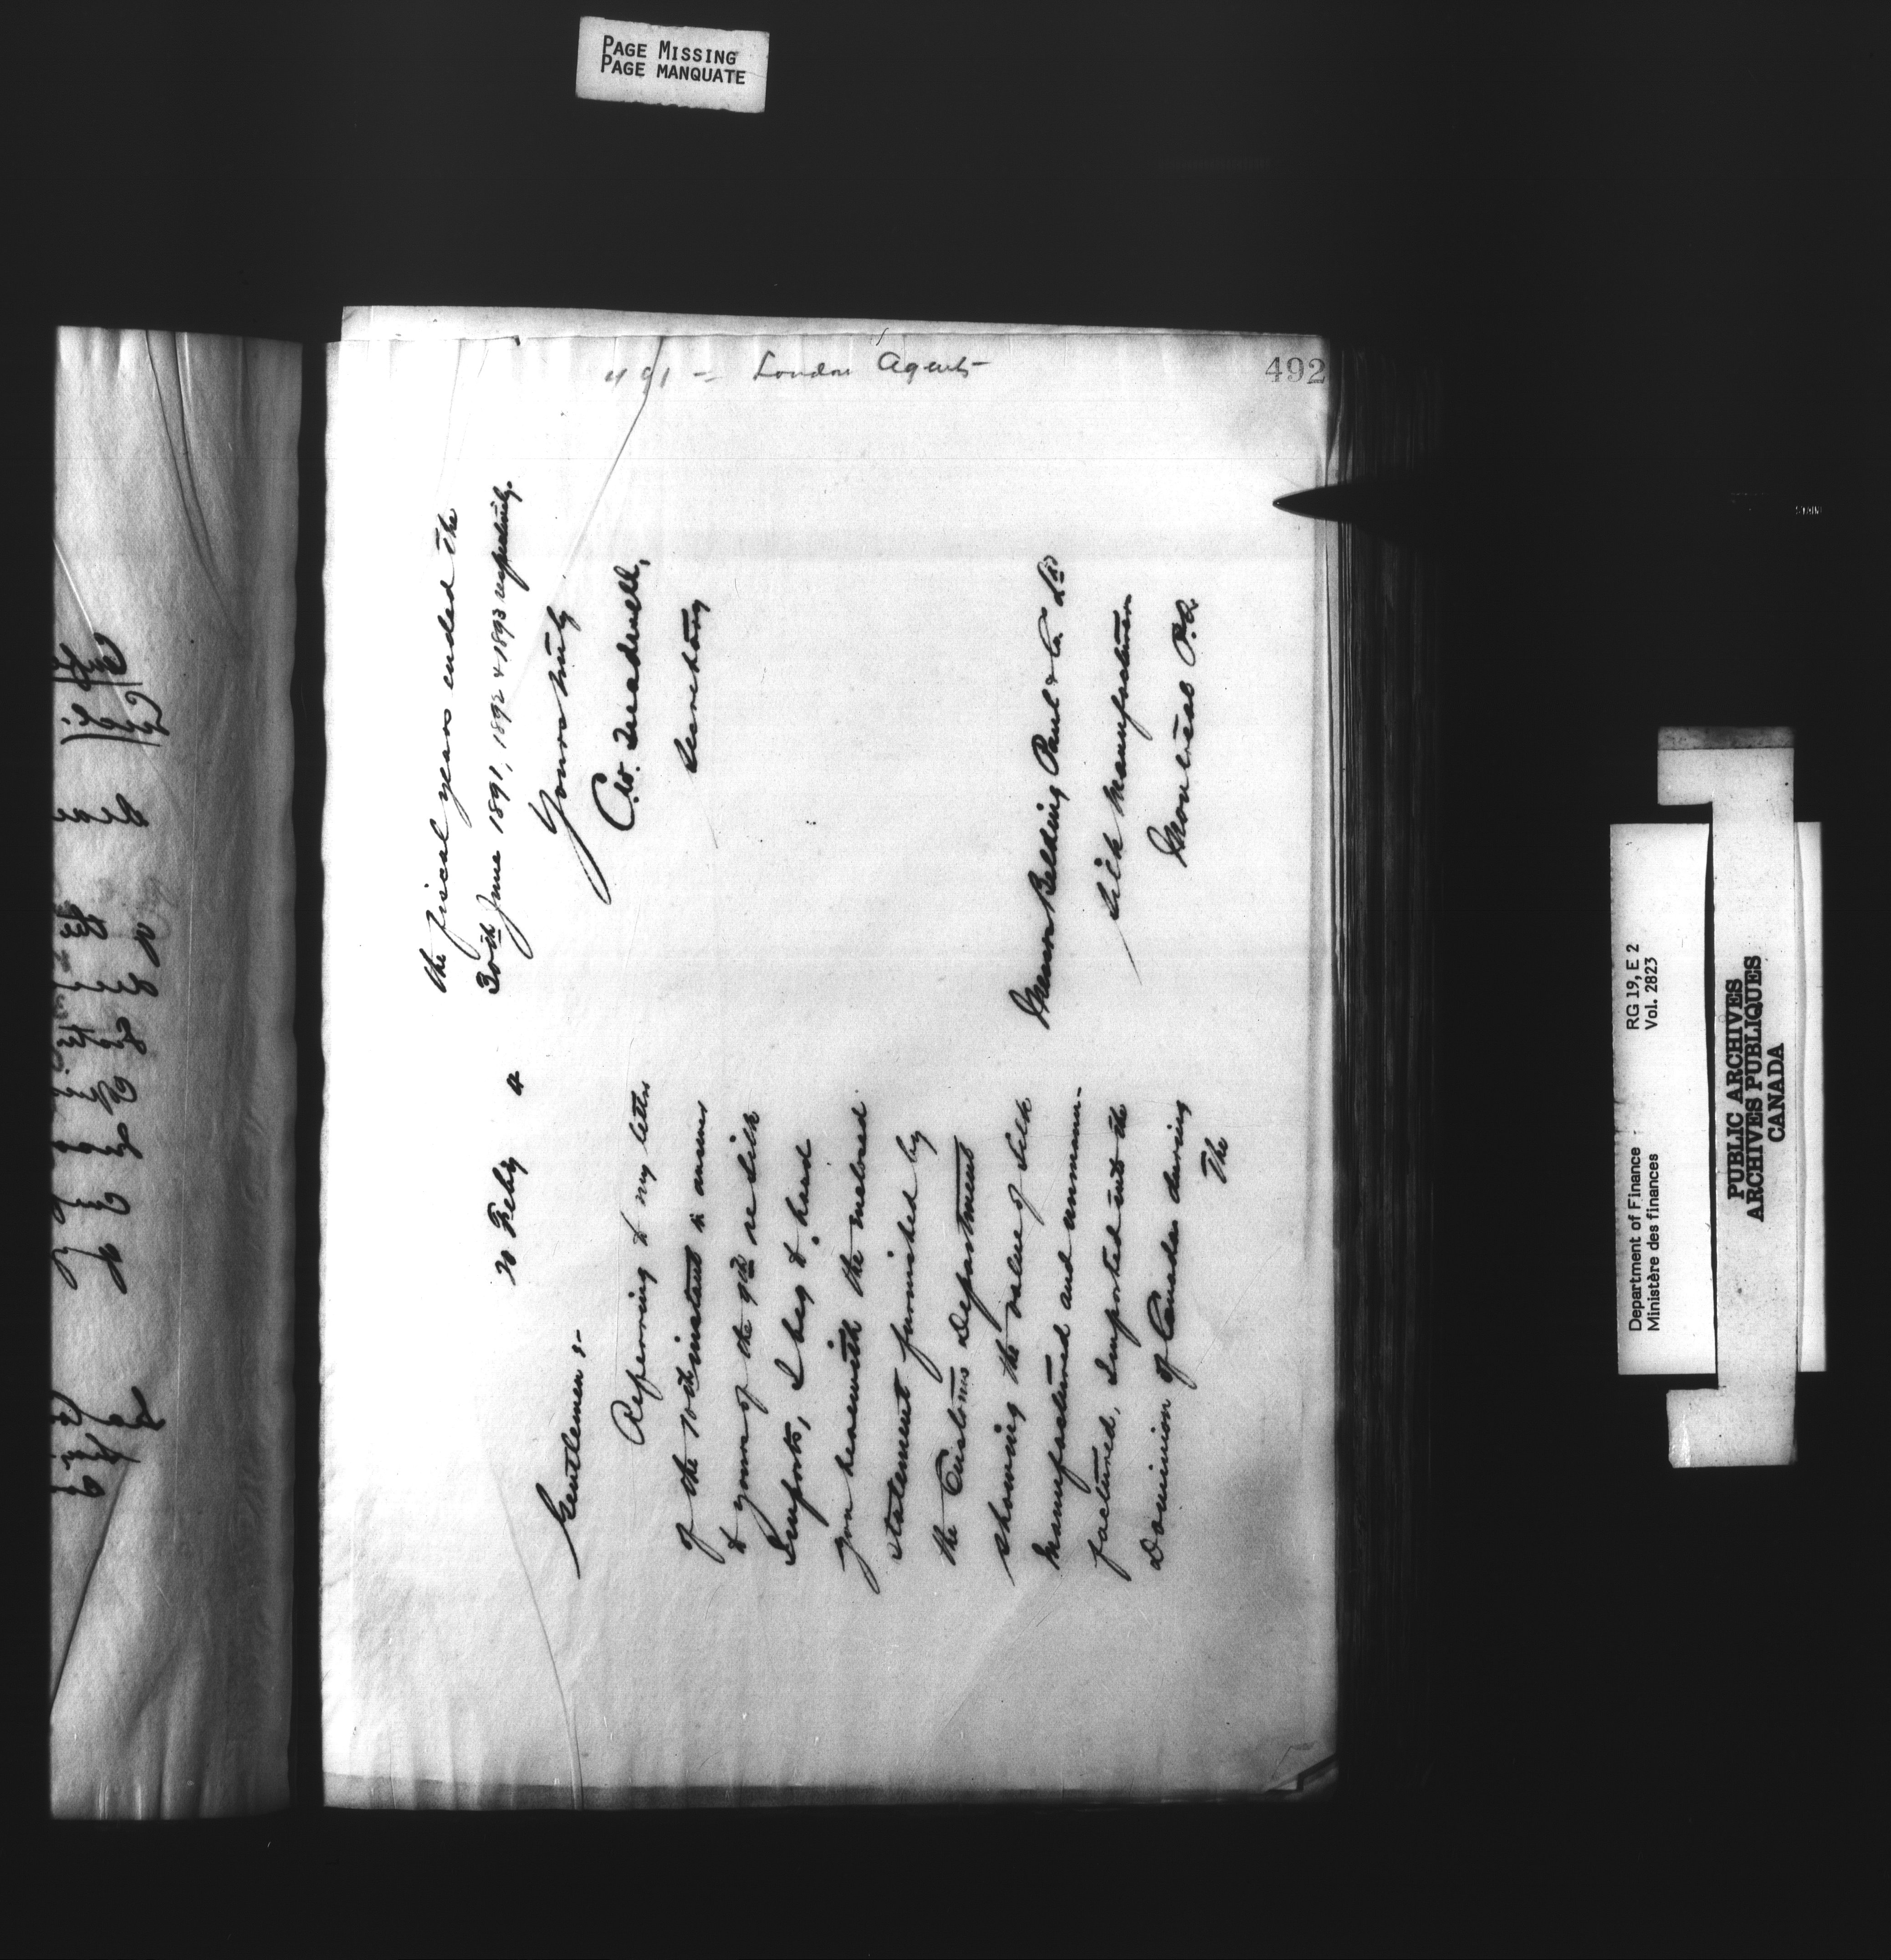 PAGE MISSING
PAGE MANQUATE
491 = London Agents
492
20 Feby 4
Gentlemen :-
Referring to my letter
of the 10th instant in answer
to yours of the 9th re Silk
Imports, I beg to hand
you herewith the enclosed
statement furnished by
the Customs Department
showing the value of silk
manufactured and unmanu-
factured, imported into the
Dominion of Canada during
The
the fiscal years ended the
30th June 1891, 1892 & 1893 respectively.
Yours truly
C.W. Treadwell,
Secretary
Messrs Belding Paul & Co. Ld
Silk Manufacturers
Montreal P.Q.
Department of Finance RG 19, E 2
Ministère des finances Vol. 2823
PUBLIC ARCHIVES
ARCHIVES PUBLIQUES
CANADA